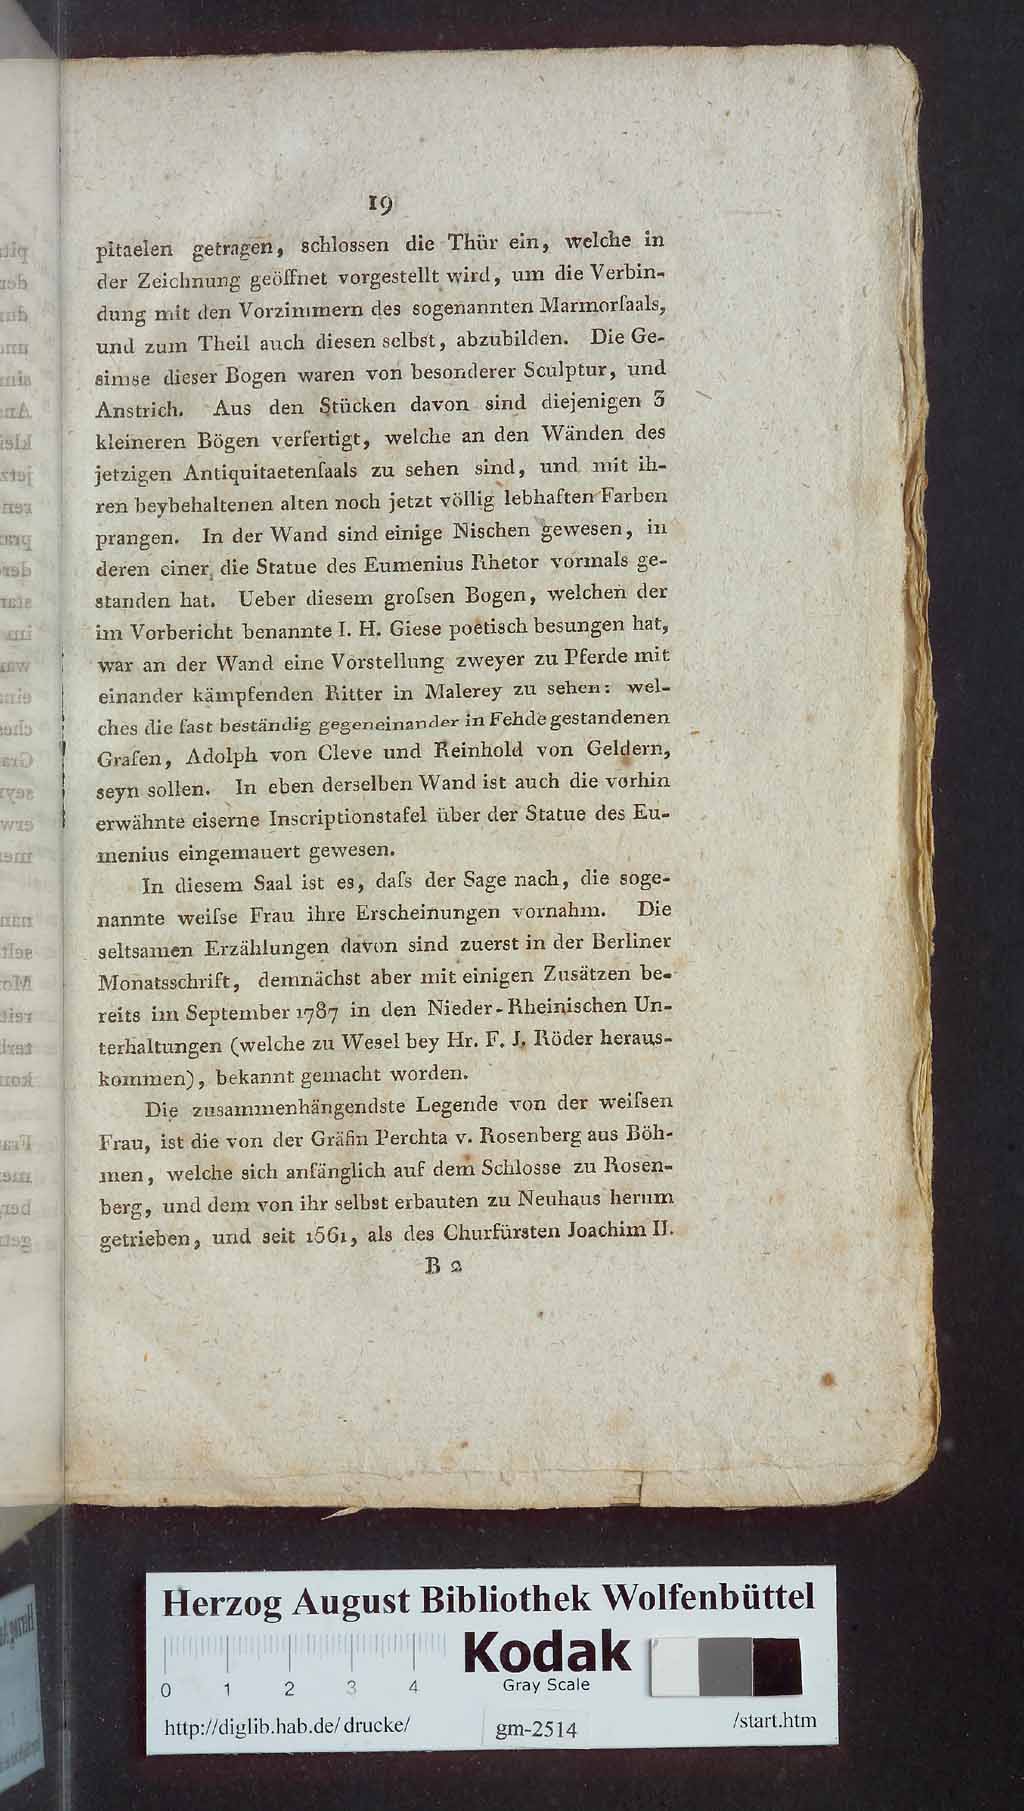 19
pitaelen getragen, schlossen die Thür ein, welche in
der Zeichnung geöffnet vorgestellt wird, um die Verbin-
dung mit den Vorzimmern des sogenannten Marmorſaals,
und zum Theil auch diesen selbst, abzubilden. Die Ge-
simse dieser Bogen waren von besonderer Sculptur, und
Anstrich. Aus den Stücken davon sind diejenigen 3
kleineren Bögen verfertigt, welche an den Wänden des
jetzigen Antiquitaetenſaals zu sehen sind, und mit ih-
ren beybehaltenen alten noch jetzt völlig lebhaften Farben
prangen. In der Wand sind einige Nischen gewesen, in
deren einer, die Statue des Eumenius Rhetor vormals ge-
standen hat. Ueber diesem groſsen Bogen, welchen der
im Vorbericht benannte I. H. Giese poetisch besungen hat,
war an der Wand eine Vorstellung zweyer zu Pferde mit
einander kämpfenden Ritter in Malerey zu sehen: wel-
ches die fast beständig gegeneinander in Fehde gestandenen
Grafen, Adolph von Cleve und Reinhold von Geldern,
seyn sollen. In eben derselben Wand ist auch die vorhin
erwähnte eiserne Inscriptionstafel über der Statue des Eu-
menius eingemauert gewesen.
In diesem Saal ist es, daſs der Sage nach, die soge-
nannte weiſse Frau ihre Erscheinungen vornahm. Die
seltsamen Erzählungen davon sind zuerst in der Berliner
Monatsschrift, demnächst aber mit einigen Zusätzen be-
reits im September 1787 in den Nieder-Rheinischen Un-
terhaltungen (welche zu Wesel bey Hr. F. J. Röder heraus-
kommen), bekannt gemacht worden.
Die zusammenhängendste Legende von der weiſsen
Frau, ist die von der Gräfin Perchta v. Rosenberg aus Böh-
men, welche sich anfänglich auf dem Schlosse zu Rosen-
berg, und dem von ihr selbst erbauten zu Neuhaus herum
getrieben, und seit 1561, als des Churfürsten Joachim II.
B 2
Herzog August Bibliothek Wolfenbüttel
Kodak
Gray Scale
0 1 2 3 4
http://diglib.hab.de/drucke/ gm-2514 /start.htm